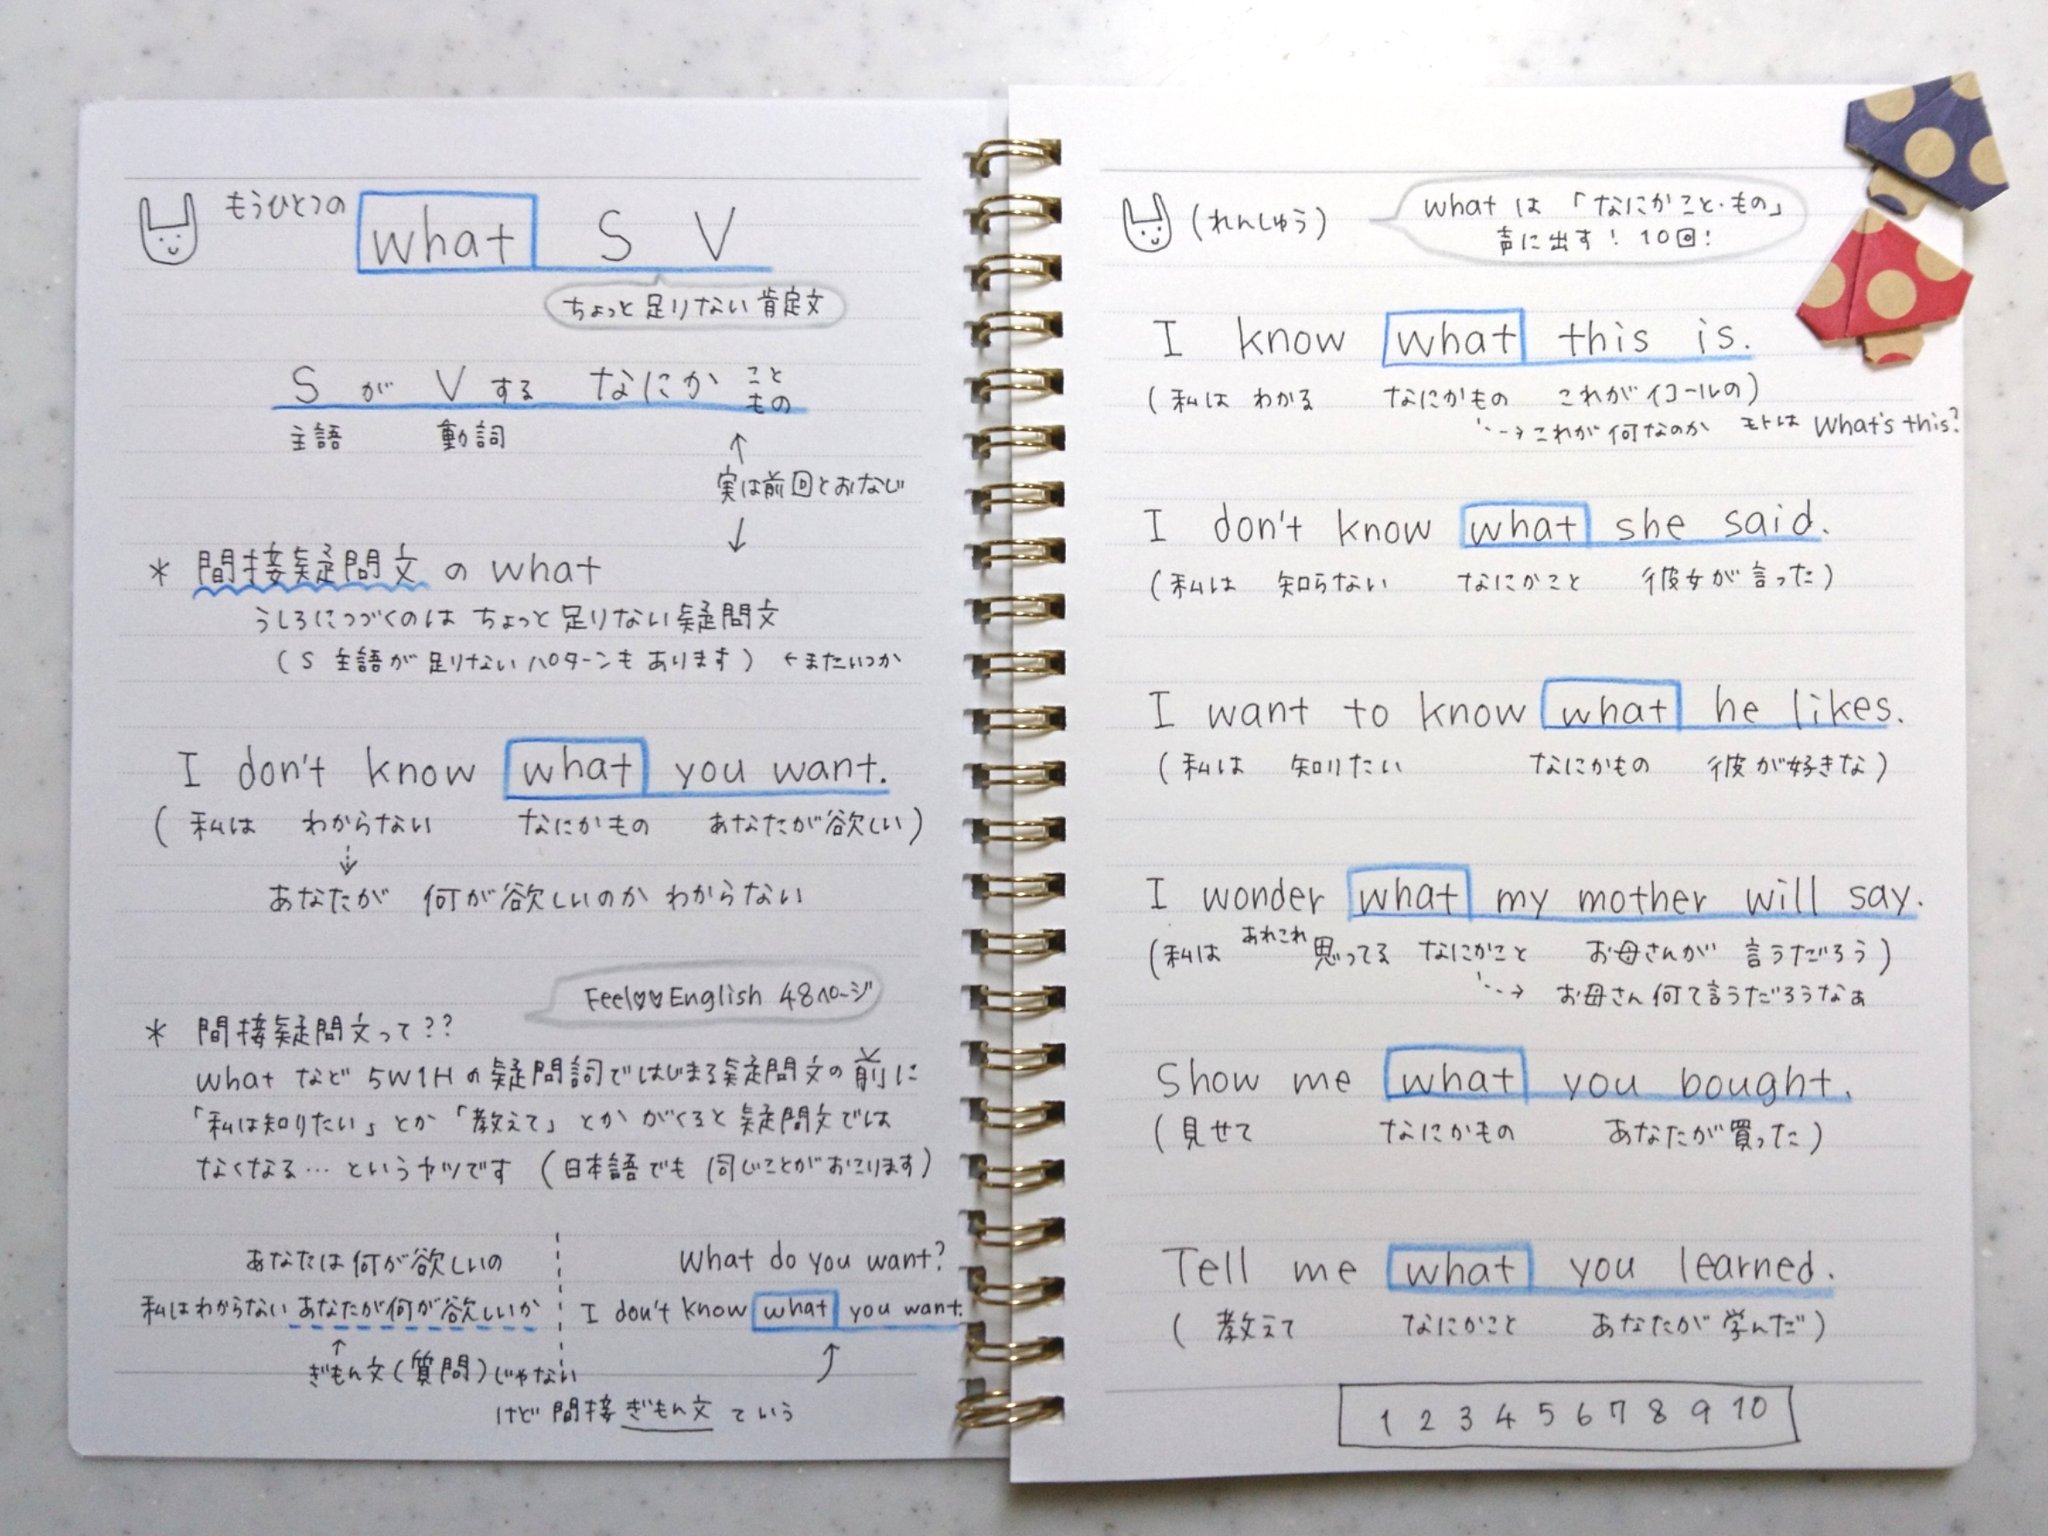 もうひとつの what S V
ちょっと足りない肯定文
S が V する なにか こと もの
主語 動詞
↑
実は前回とおなじ
↓
* 間接疑問文 の what
うしろにつづくのは ちょっと足りない疑問文
( S 主語が足りないパターンもあります ) ←またいつか
I don't know what you want.
( 私は わからない なにかもの あなたが欲しい )
あなたが 何が欲しいのか わからない
Feel♡♡English 48ページ
* 間接疑問文って??
what など 5W1Hの疑問詞ではじまる疑問文の前に
「私は知りたい」とか「教えて」とか がくると疑問文では
なくなる… というヤツです (日本語でも 同じことがおこります)
あなたは何が欲しいの
私はわからない あなたが何が欲しいか
↑
ぎもん文(質問)じゃない
けど 間接ぎもん文 ていう
What do you want?
I don't know what you want.
(れんしゅう)
what は 「なにかこと・もの」
声に出す! 10回!
I know what this is.
(私は わかる なにかもの これがイコールの)
→これが何なのか モトは What's this?
I don't know what she said.
(私は 知らない なにかこと 彼女が言った)
I want to know what he likes.
(私は 知りたい なにかもの 彼が好きな)
I wonder what my mother will say.
(私は あれこれ 思ってる なにかこと お母さんが 言うだろう)
→ お母さん何て言うだろうなぁ
Show me what you bought.
(見せて なにかもの あなたが買った)
Tell me what you learned.
(教えて なにかこと あなたが学んだ)
1 2 3 4 5 6 7 8 9 10